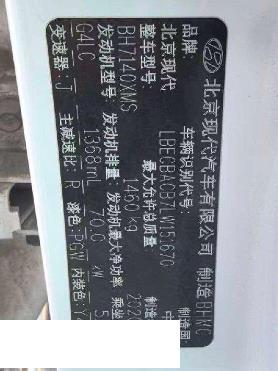 北京现代汽车有限公司 制造 BHMC
品牌: 北京现代 车辆识别代号: LBECBACB7LW151670 制造国: 中
整车型号: BH7140XMS 最大允许总质量 1460 kg 制造 2020
发动机型号: G4LC 发动机排量: 1368 mL 发动机最大净功率 70.0 kW 乘坐 5
变速器: J 主减速比: R 漆色: PGW 内装色: Y